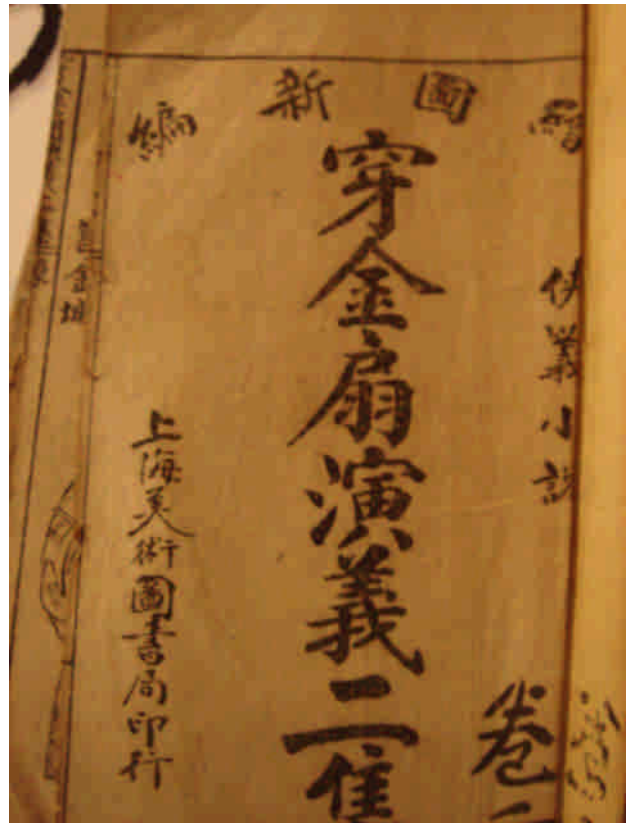 繪圖新編
俠義小説
卷
穿金扇演義二集
上海美術圖書局印行